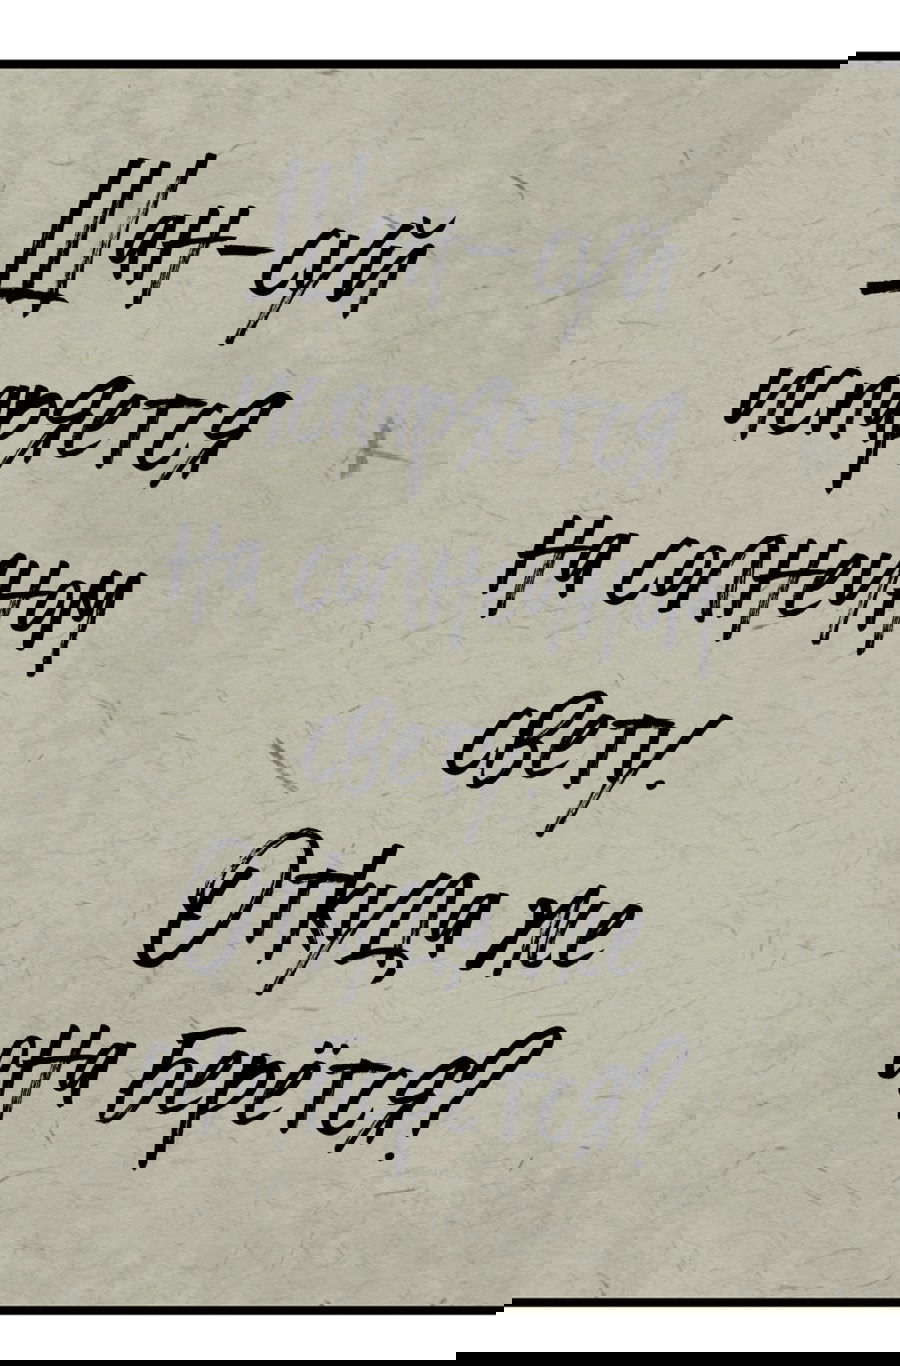 Шан-суй
испаряется
на солнечном
свету.
Откуда же
она берётся?